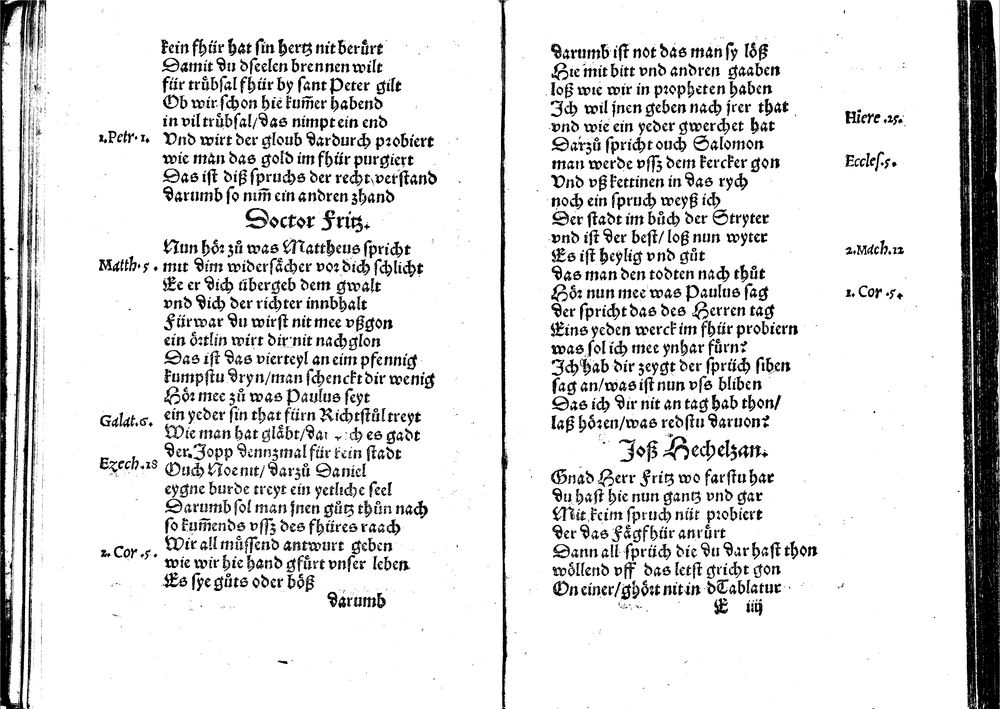 kein fhür hat sin hertz nit berůrt
Damit du dseelen brennen wilt
für trůbsal fhür by sant Peter gilt
Ob wir schon hie kum̃er habend
in vil trůbsal/das nimpt ein end
1.Petr.1. Vnd wirt der gloub dardurch probiert
wie man das gold im fhür purgiert
Das ist diß spruchs der recht verstand
darumb so nim̃ ein andren zhand
Doctor Fritz.
Nun hör zů was Mattheus spricht
Matth.5. mit dim widersächer vor dich schlicht
Ee er dich übergeb dem gwalt
vnd dich der richter innbhalt
Fürwar du wirst nit mee vßgon
ein örtlin wirt dir nit nachglon
Das ist das vierteyl an eim pfennig
kumpstu dryn/man schenckt dir wenig
Hör mee zů was Paulus seyt
Galat.6. ein yeder sin that fürn Richtstůl treyt
Wie man hat gläbt/ es gadt
der Jopp dennzmal für kein stadt
Ezech.18 Ouch Noe nit/ darzů Daniel
eygne burde treyt ein yetliche seel
Darumb sol man jnen gůtz thůn nach
so kum̃ends vssz des fhüres raach
2. Cor .5. Wir all můssend antwurt geben
wie wir hie hand gfůrt vnser leben
Es sye gůts oder böß
darumb
darumb ist not das man sy löß
Hie mit bitt vnd andren gaaben
loß wie wir in propheten haben
Ich wil jnen geben nach jrer that
Hiere .25. vnd wie ein yeder gwerchet hat
Darzů spricht ouch Salomon
Eccles.5. man werde vssz dem kercker gon
Vnd vß kettinen in das rych
noch ein spruch weyß ich
Der stadt im bůch der Stryter
vnd ist der best/ loß nun wyter
2.Mach.12 Es ist heylig vnd gůt
das man den todten nach thůt
1. Cor .5. Hör nun mee was Paulus sag
der spricht das des Herren tag
Eins yeden werck im fhür probiern
was sol ich mee ynhar fůrn?
Ich hab dir zeygt der sprüch siben
sag an/was ist nun vss bliben
Das ich dir nit an tag hab thon/
laß hören/was redstu daruon?
Joß Hechelzan.
Gnad Herr Fritz wo farstu har
du hast hie nun gantz vnd gar
Mit keim spruch nüt probiert
der das Fägfhür anrůrt
Dann all sprüch die du dar hast thon
wöllend vff das letst gricht gon
On einer/ghört nit in dTablatur
E iiij